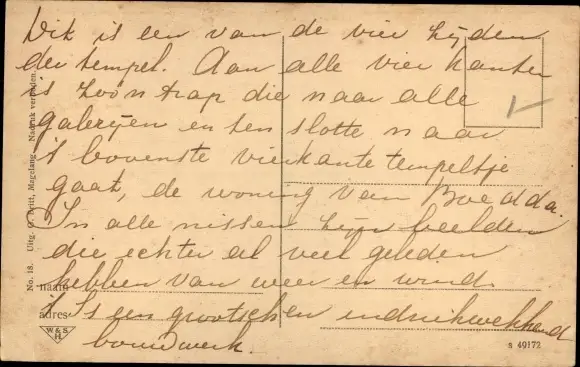 Dit is een van de vier zijden
der tempel. Aan alle vier kanten
is zoo'n trap die naar alle
galerijen en ten slotte naar
't bovenste vierkante tempeltje
gaat, de woning van Boedda.
In alle nissen zijn beelden
die echter al veel geleden
hebben van weer en wind.
't Is een grootschen indrukwekkend
bouwwerk.
naam
adres
No. 18. Uitg. Magelang. Nadruk verboden.
W & S
H
S 49172